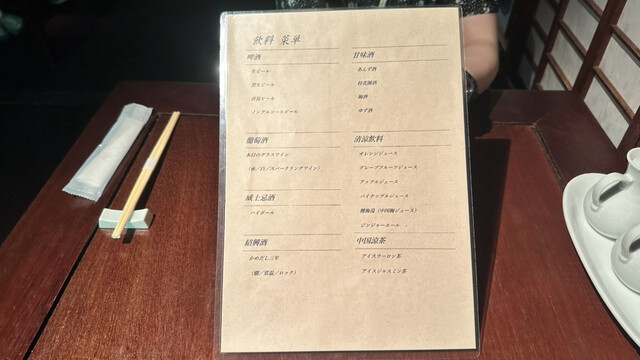 飲料 菜単
啤酒
生ビール
黒生ビール
青島ビール
ノンアルコールビール
葡萄酒
本日のグラスワイン
（赤／白／スパークリングワイン）
威士忌酒
ハイボール
紹興酒
かめだし三年
（燗／常温／ロック）
甘味酒
あんず酒
桂花陳酒
梅酒
ゆず酒
清涼飲料
オレンジジュース
グレープフルーツジュース
アップルジュース
パイナップルジュース
酸梅湯（中国梅ジュース）
ジンジャーエール
中国涼茶
アイスウーロン茶
アイスジャスミン茶